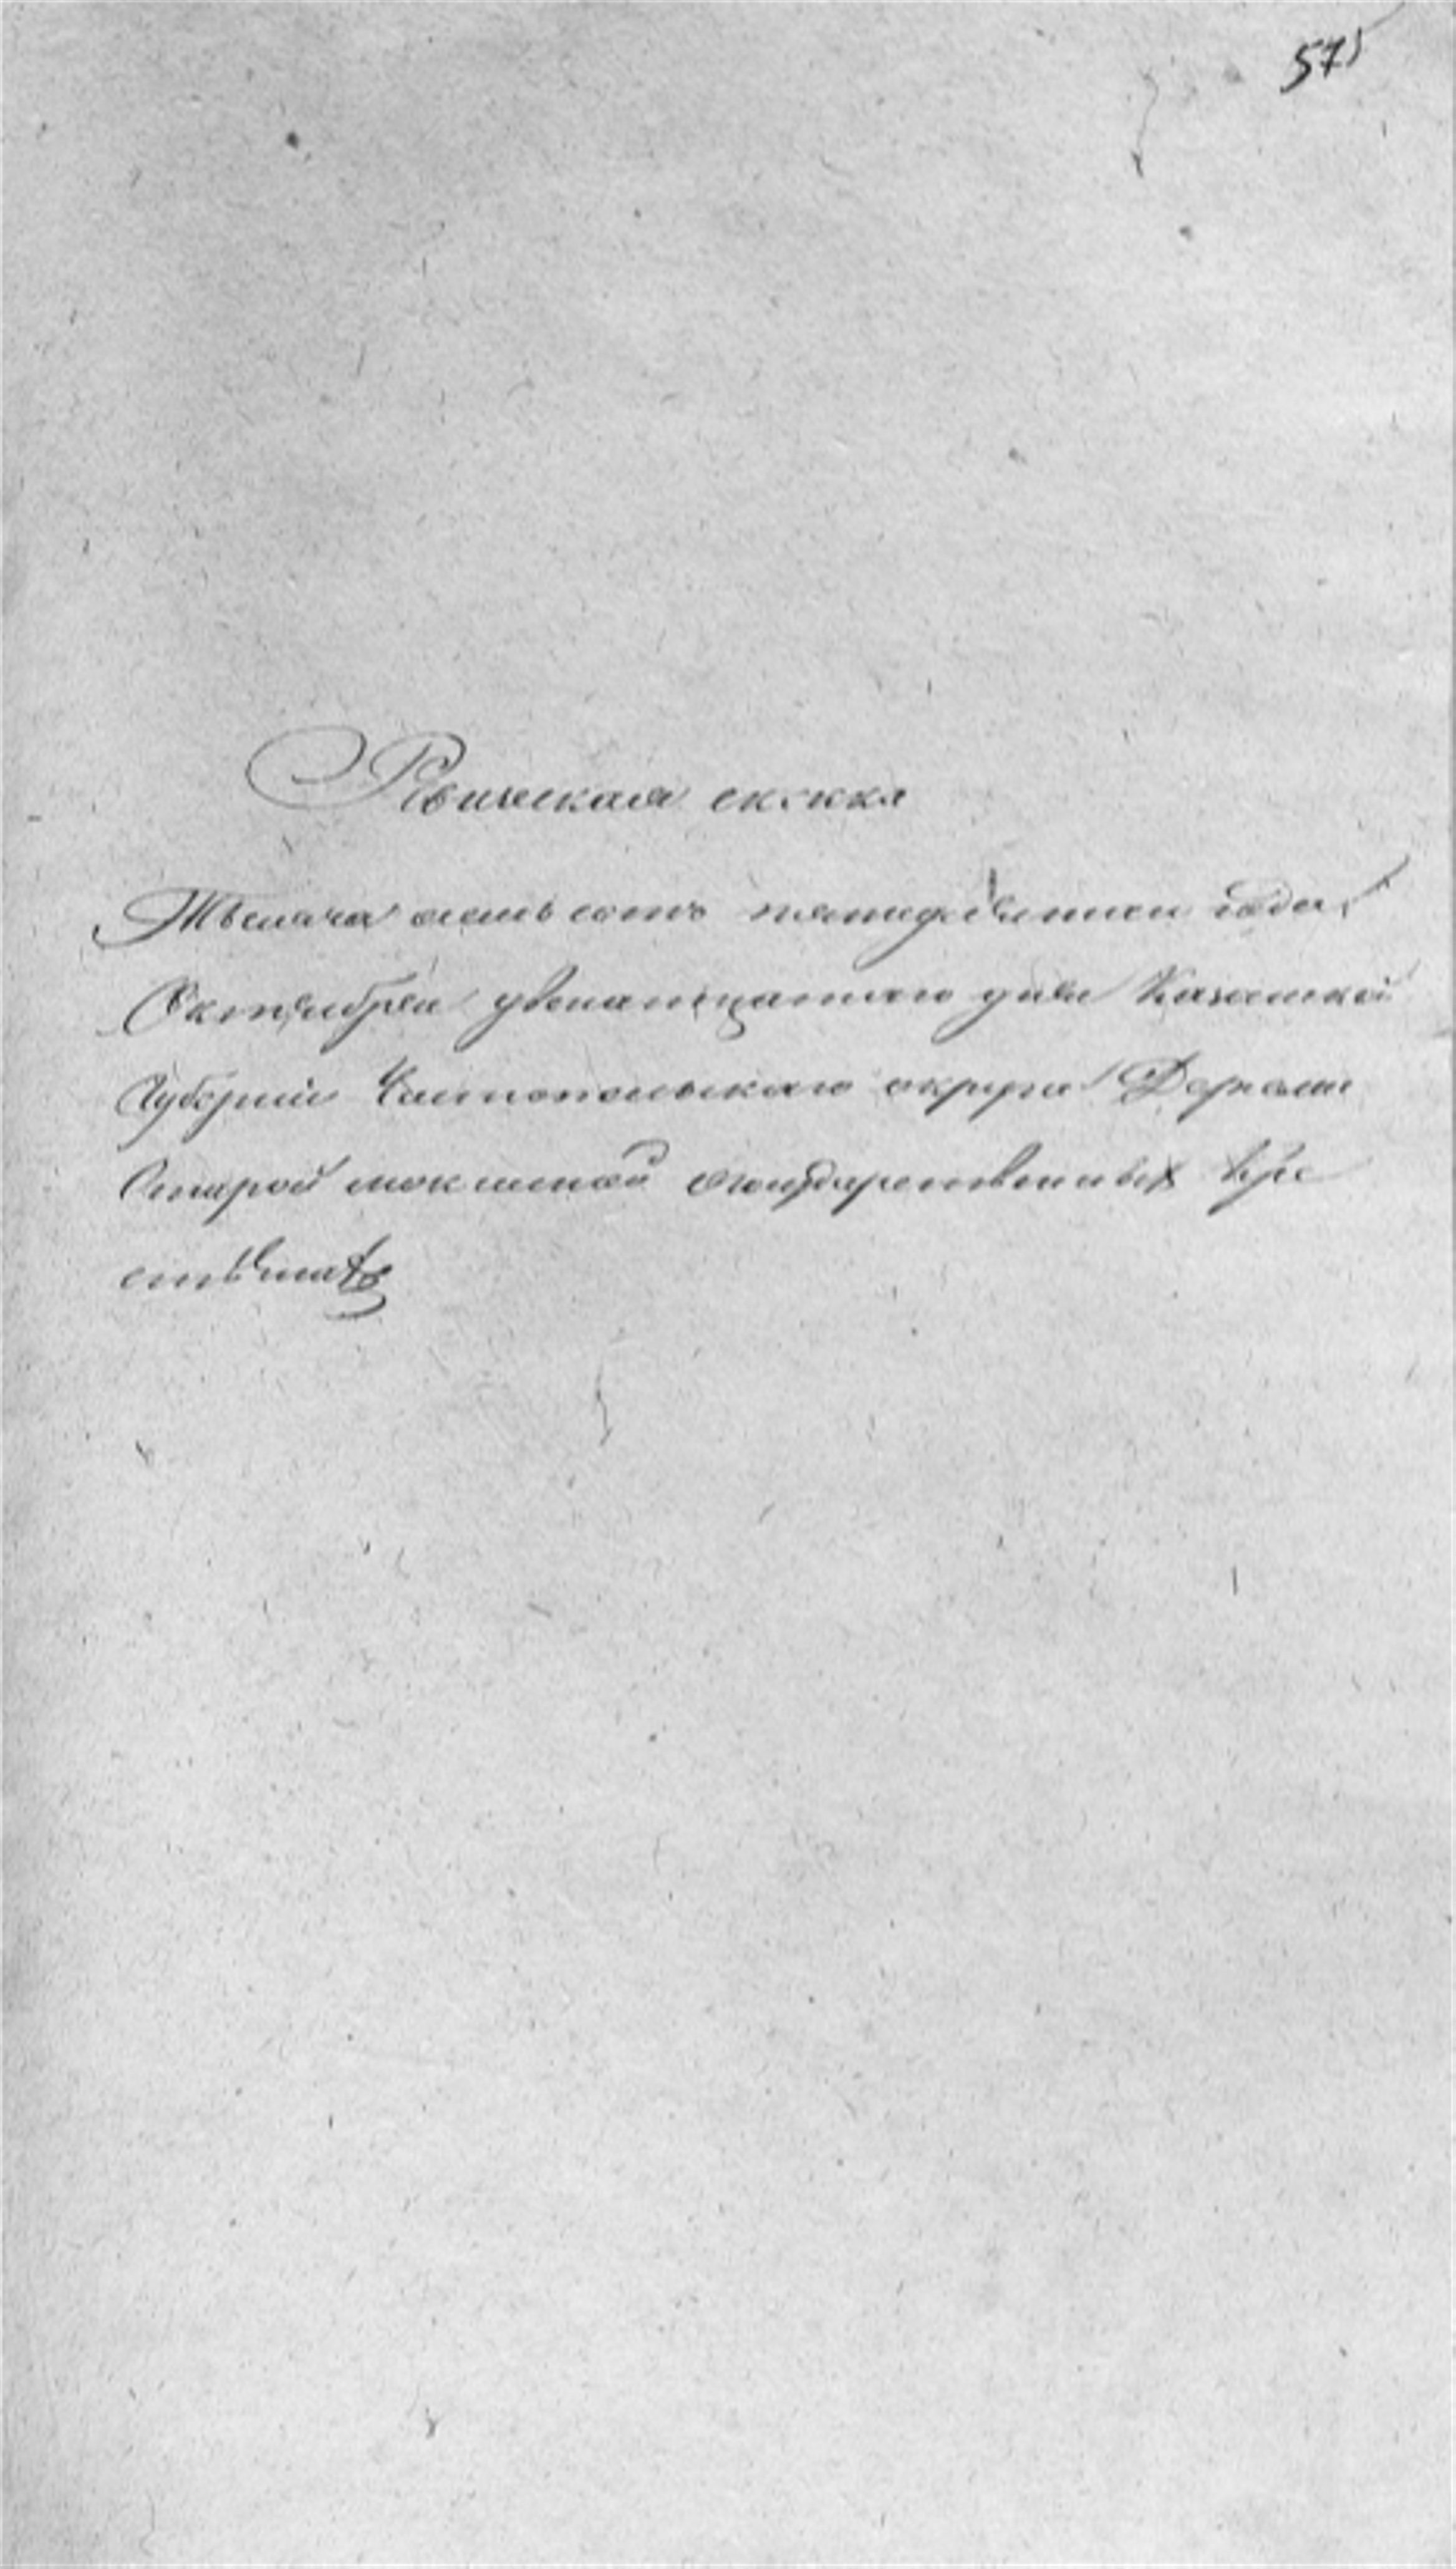 571
Ревизская скаска
Тысяча осемь сотъ пятидесятаго года,
Октября двенатцатаго дня Казанской
Губернии Чистопольскаго округа Деревни
Старой мокшиной Государственныхъ кре
стьянъ